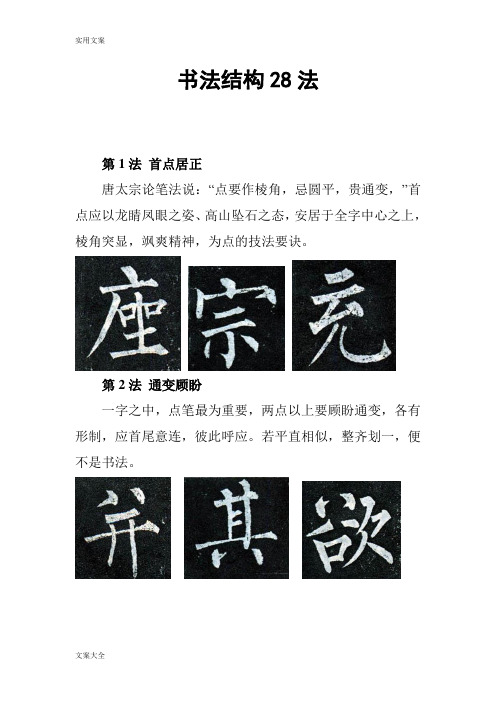 实用文案
书法结构28法
第1法 首点居正
唐太宗论笔法说：“点要作棱角，忌圆平，贵通变，”首
点应以龙睛凤眼之姿、高山坠石之态，安居于全字中心之上，
棱角突显，飒爽精神，为点的技法要诀。
座 宗 充
第2法 通变顾盼
一字之中，点笔最为重要，两点以上要顾盼通变，各有
形制，应首尾意连，彼此呼应。若平直相似，整齐划一，便
不是书法。
并 其 欲
文案大全